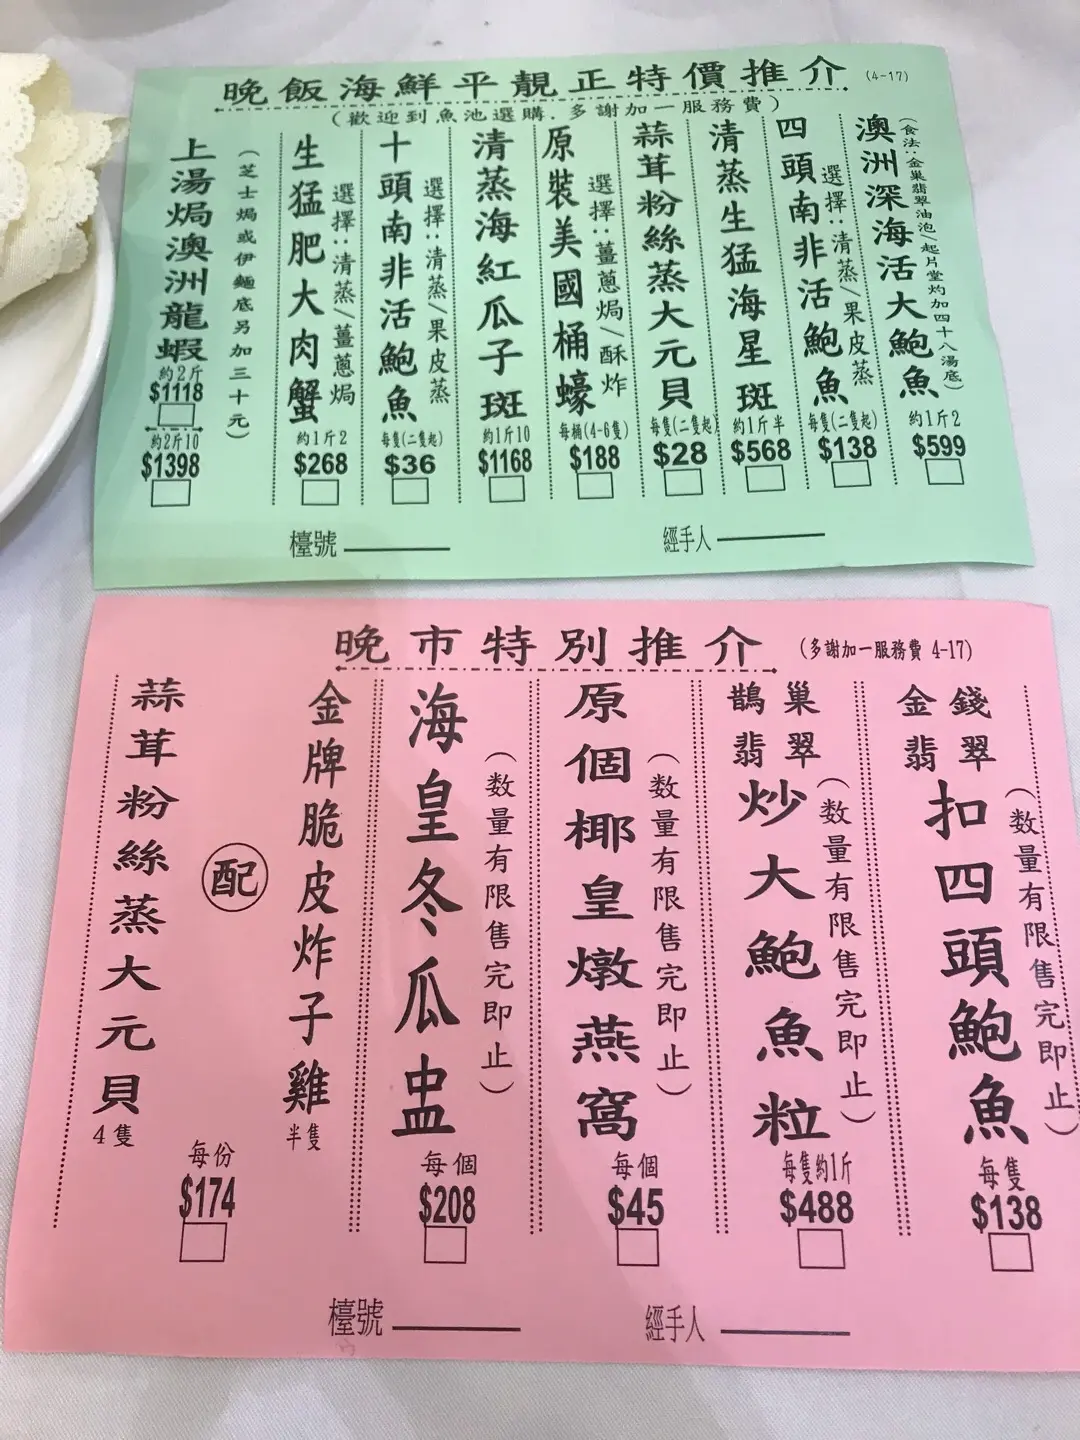 晚飯海鮮平靚正特價推介 (4-17)
(歡迎到魚池選購．多謝加一服務費)
澳洲深海活大鮑魚
(食法：金巢翡翠油泡/起片堂灼加四十八湯底)
約1斤2
$599
四頭南非活鮑魚
選擇：清蒸/果皮蒸
每隻(二隻起)
$138
清蒸生猛海星斑
約1斤半
$568
蒜茸粉絲蒸大元貝
每隻(二隻起)
$28
原裝美國桶蠔
選擇：薑蔥焗/酥炸
每桶(4-6隻)
$188
清蒸海紅瓜子斑
約1斤10
$1168
十頭南非活鮑魚
選擇：清蒸/果皮蒸
每隻(二隻起)
$36
生猛肥大肉蟹
選擇：清蒸/薑蔥焗
約1斤2
$268
上湯焗澳洲龍蝦
(芝士焗或伊麵底另加三十元)
約2斤
$1118
約2斤10
$1398
檯號
經手人
晚市特別推介 (多謝加一服務費 4-17)
金錢
翡翠
扣四頭鮑魚
(数量有限售完即止)
每隻
$138
鵲巢
翡翠
炒大鮑魚粒
(数量有限售完即止)
每隻約1斤
$488
原個椰皇燉燕窩
(数量有限售完即止)
每個
$45
海皇冬瓜盅
(数量有限售完即止)
每個
$208
金牌脆皮炸子雞
半隻
配
蒜茸粉絲蒸大元貝
4隻
每份
$174
檯號
經手人